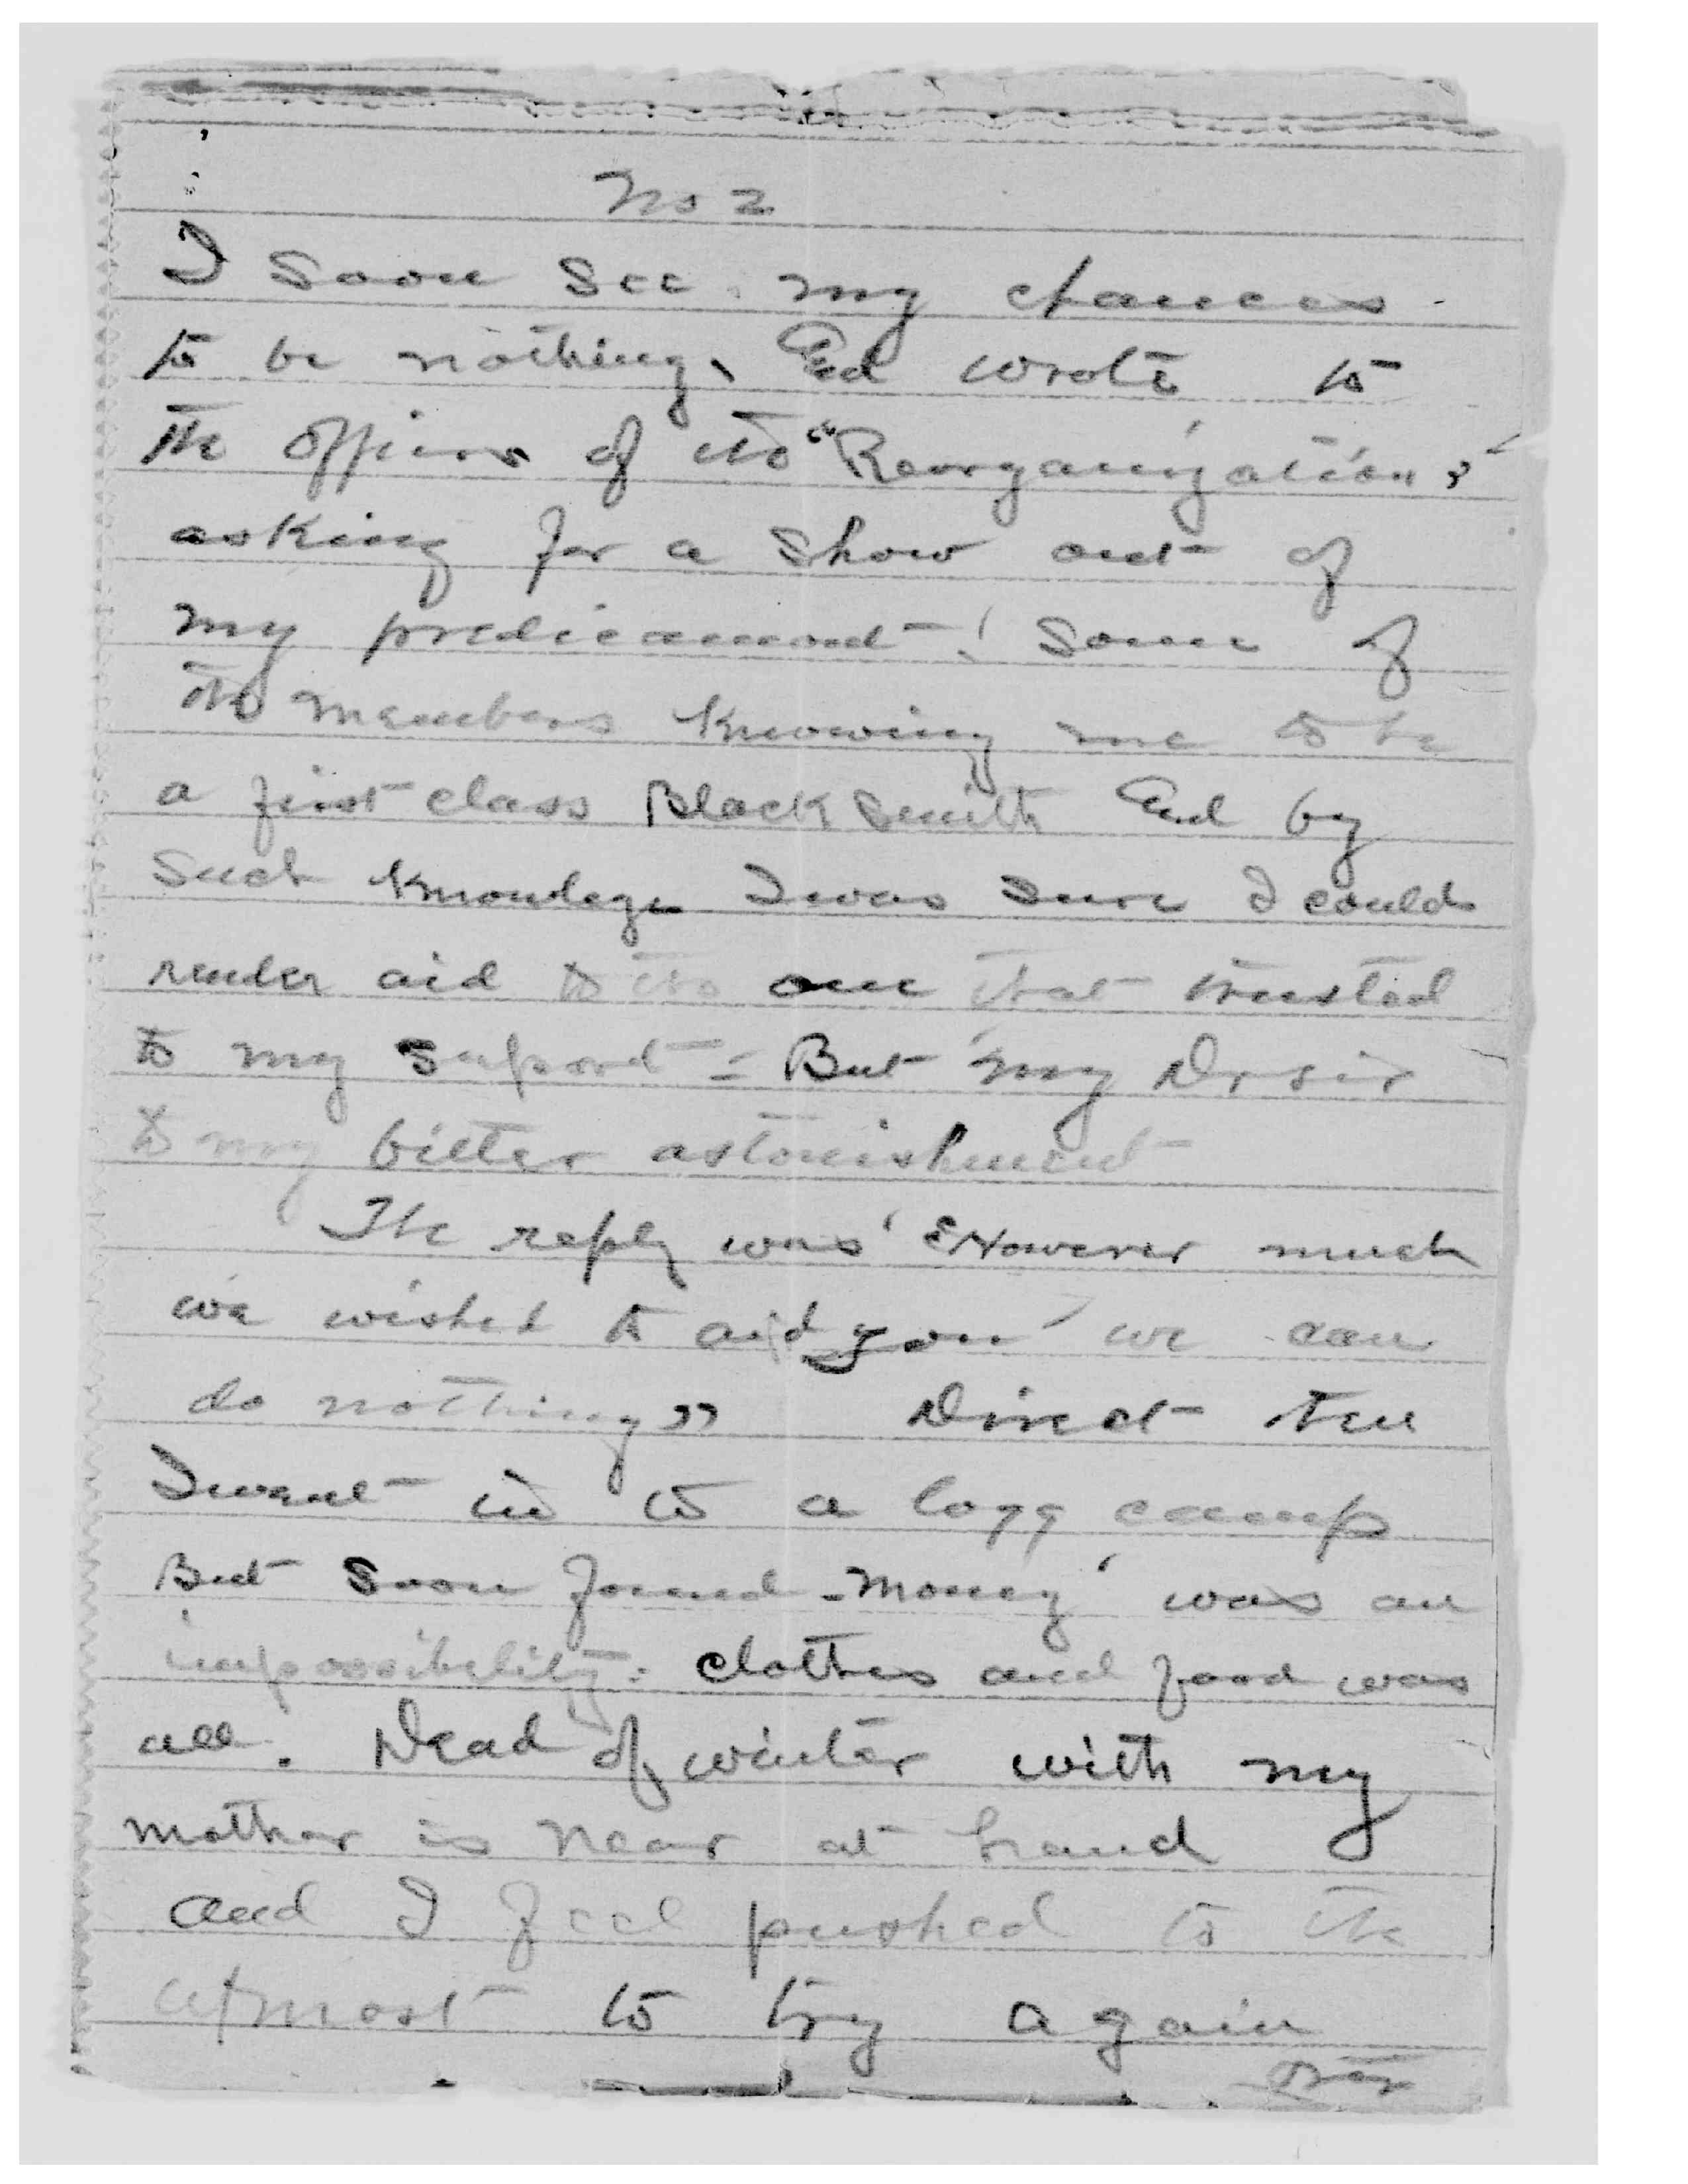 No 2
I soon see my chances
to be nothing, Ed wrote to
the officers of the "Reorganization,"
asking for a show out of
my predicament! Some of
the members knowing me to be
a first class Black Smith End by
such knowlege I was sure I could
render aid to the one that trusted
to my suport = But my Dr sir
to my bitter astonishment
The reply was "However much
we wished to aid you we can
do nothing" Direct
I went in to a logg camp
But soon found - money was an
impossibility: clothes and food was
all. Dead of winter with my
mother is near at hand
and I feel pushed to the
utmost to try again